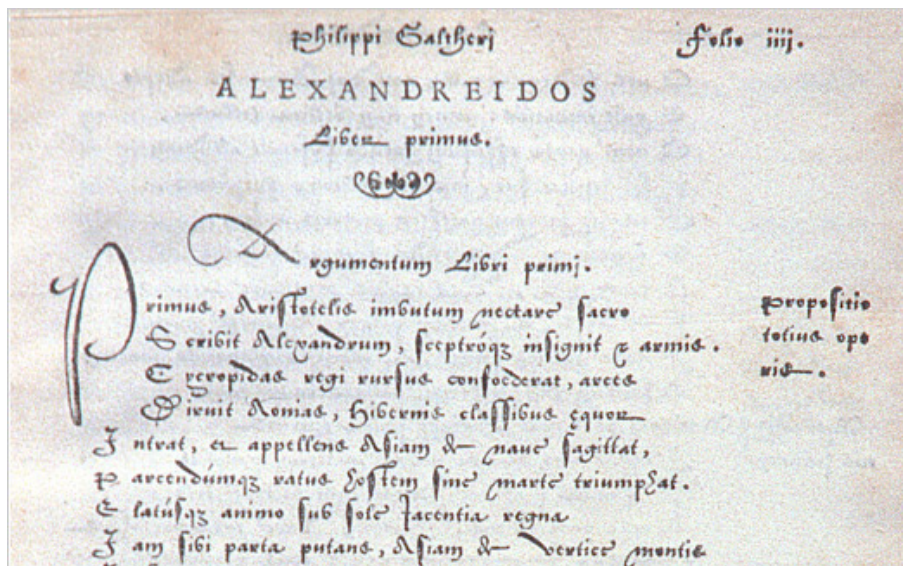 Philippi Galtheri Folio iiij.
ALEXANDREIDOS
Liber primus.
Argumentum Libri primj.
Primus, Aristotelis imbutum nectare sacro
Scribit Alexandrum, sceptróqꝫ insignit & armis.
Cecropidas regi rursus confoederat, arces
Diruit Aomas, Hibernis classibus ęquor
Intrat, et appellens Asiam de naue sagittat,
Parcendúmqꝫ ratus hostem sine marte triumphat.
Elatúsqꝫ animo sub sole Jacentia regna
Jam sibi parta putans, Asiam de vertice montis
Propositio
totius ope
ris.